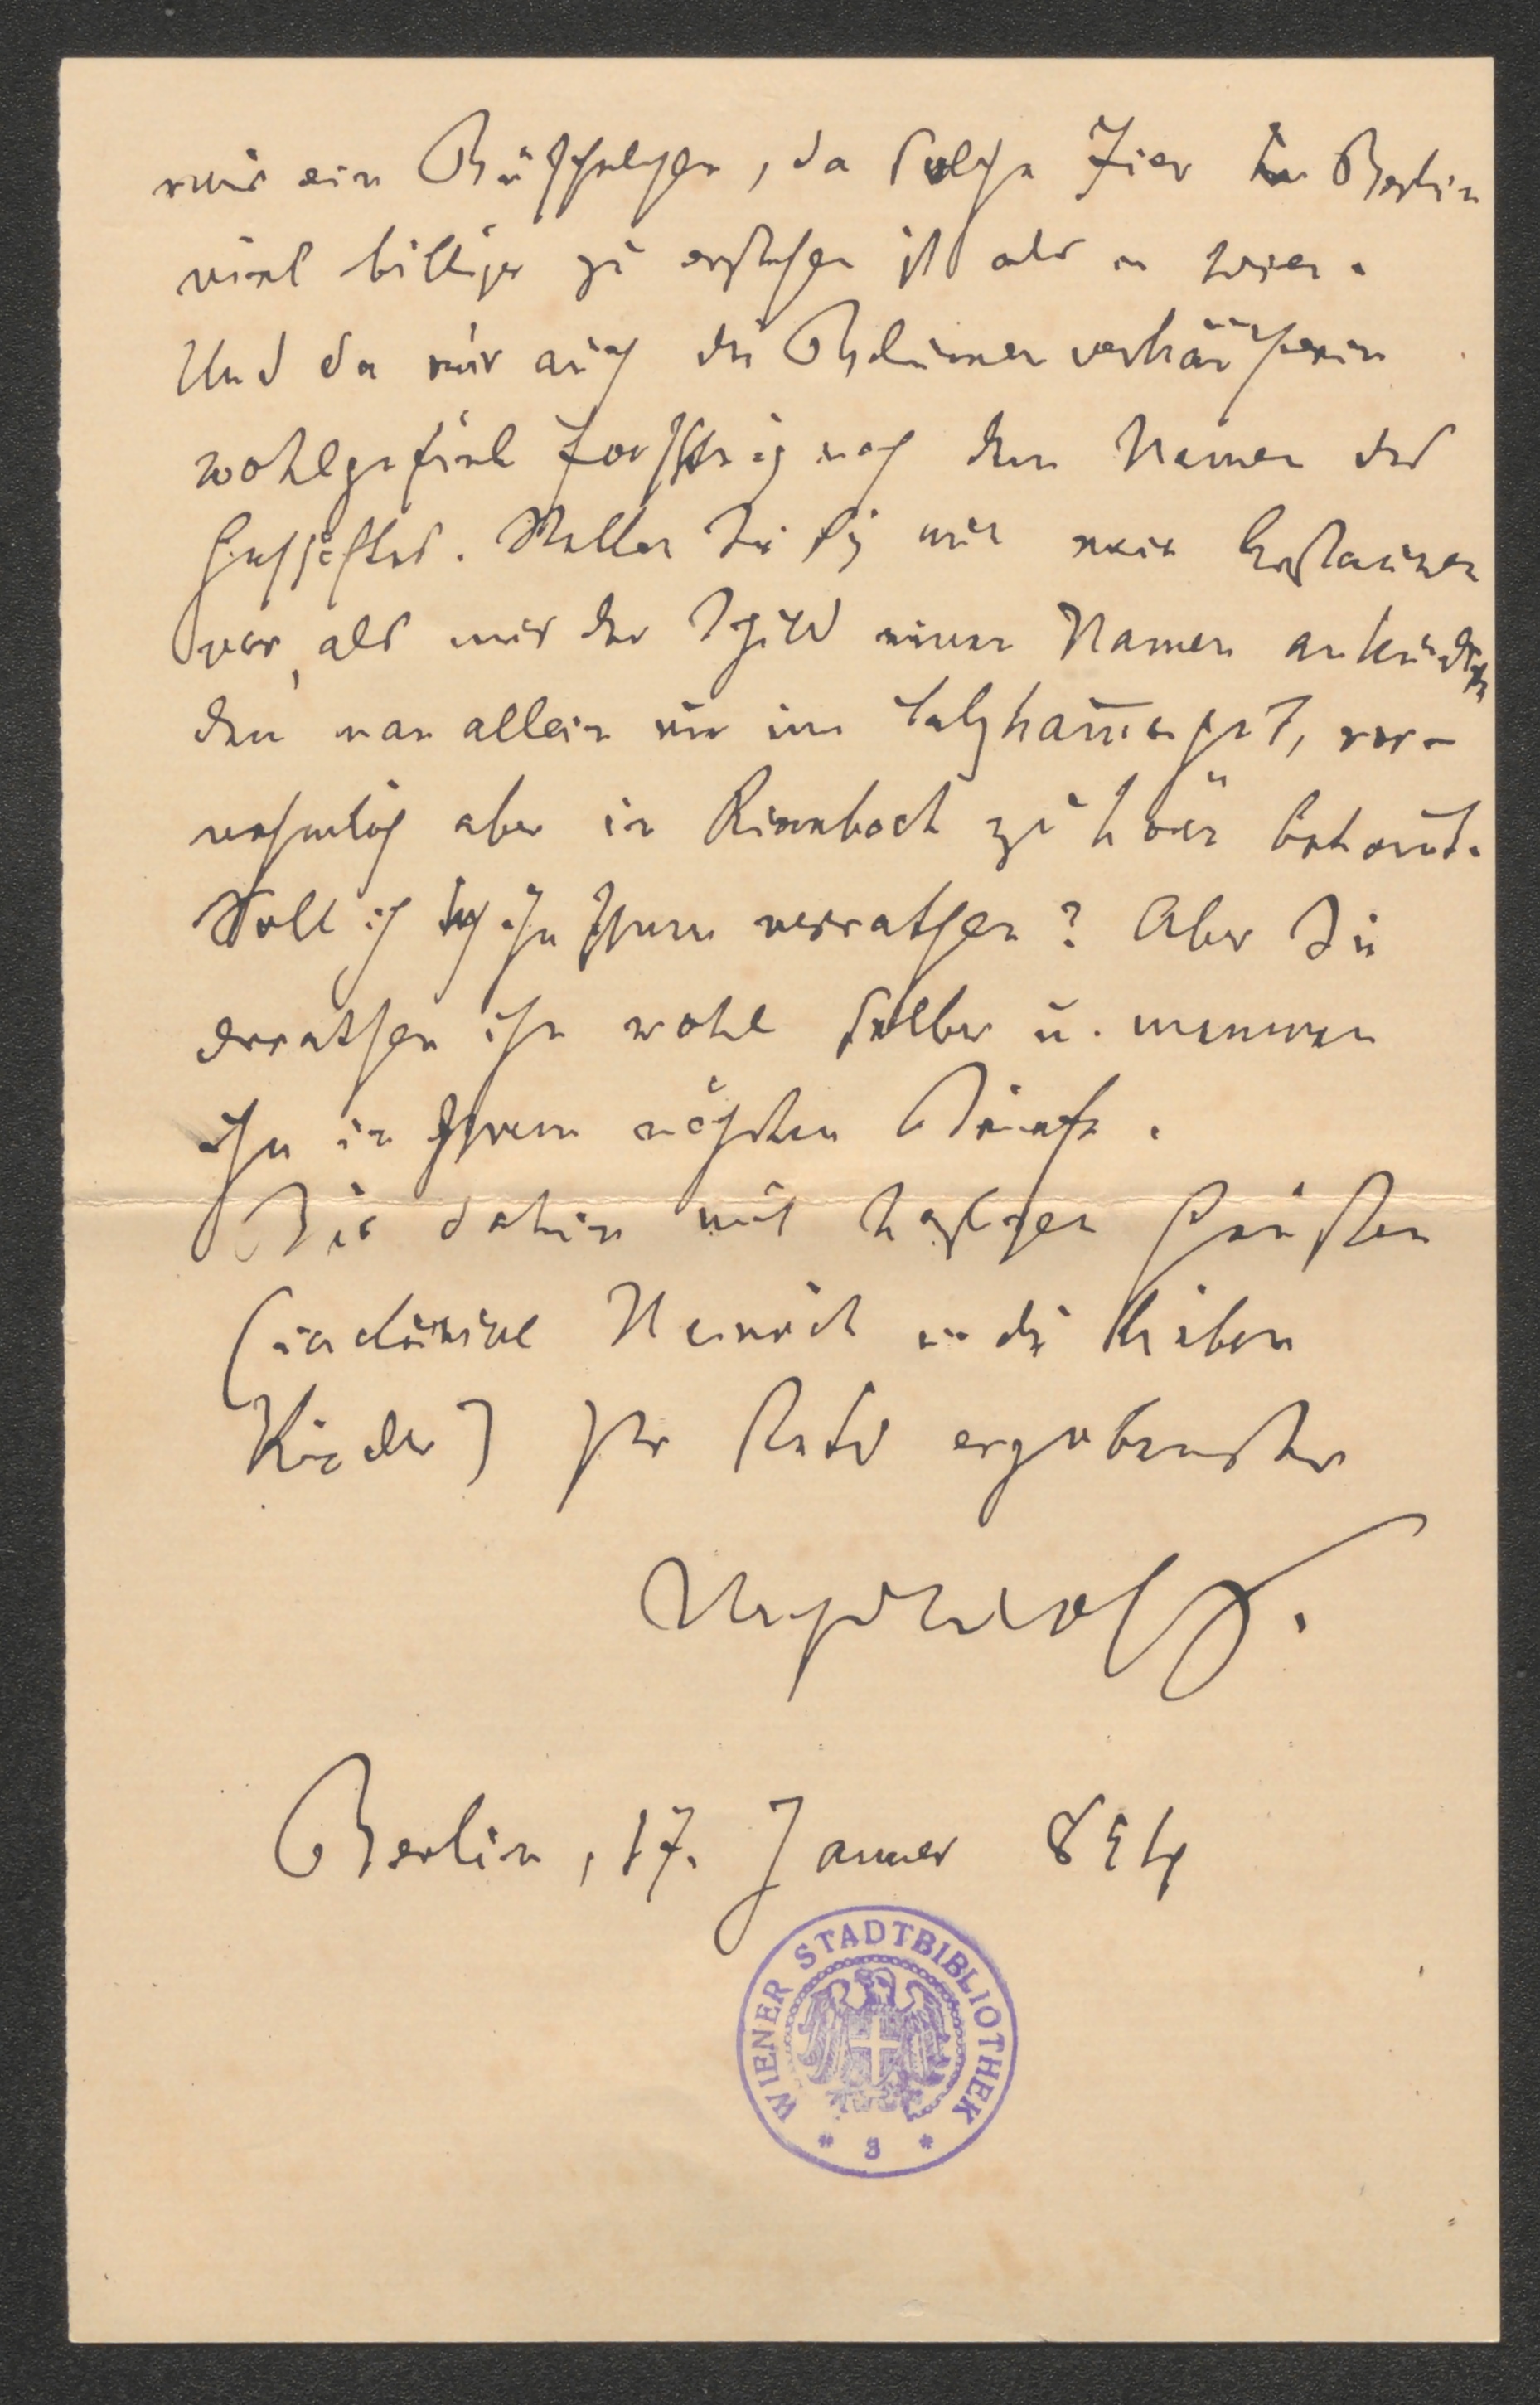 mir ein Büschelchen, da solche hier in Berlin
viel billiger zu erstehen ist als in Wien.
Und da mir auch die Blumenverkäuferin
wohlgefiel forschte ich nach dem Namen des
Geschäftes. Stellen Sie sich nur mein Erstaunen
vor, als mir der Schild einen Namen ankündigte
den man allein nur im Salzkammergut, vor-
nehmlich aber in Rinnbach zu hören bekommt.
Soll ich ihn Ihnen verrathen? Aber Sie
errathen ihn wohl selber u. nennen
ihn in Ihrem nächsten Briefe.
Bis dahin mit herzlichen Grüßen
(inclusive Heinrich und die lieben
Kinder) Ihr stets ergebenster
Hugo Wolf.
Berlin, 17. Jänner 894
WIENER STADTBIBLIOTHEK
* 3 *